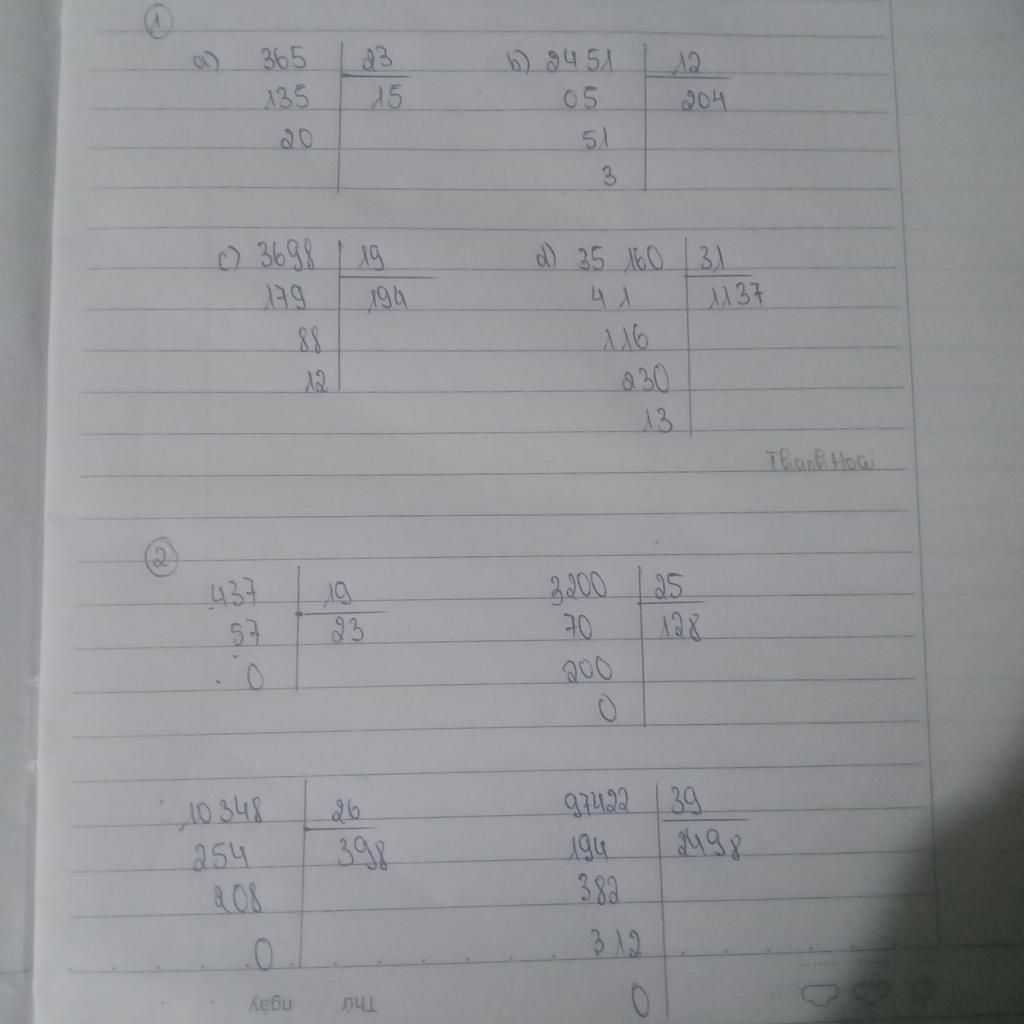 1
a) 365 23 b) 2451 12
135 15 05 204
20 51
3
c) 3698 19 d) 35 160 31
179 194 41 1137
88 116
12 230
13
Thanh Hoai
2
437 19 3200 25
57 23 70 128
0 200
0
10 348 26 97422 39
254 398 194 2498
208 382
0 312
Thứ ngày 0